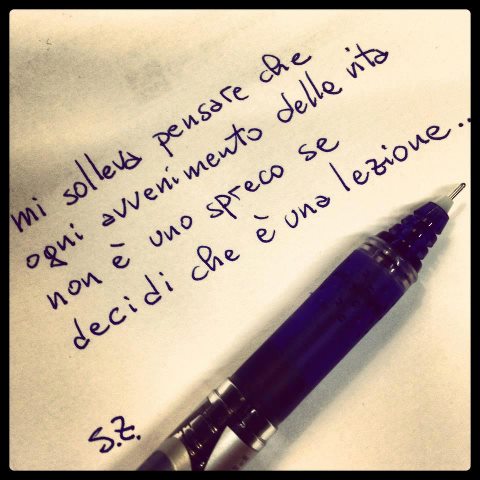 mi solleva pensare che
ogni avvenimento della vita
non è uno spreco se
decidi che è una lezione...
S.Z.